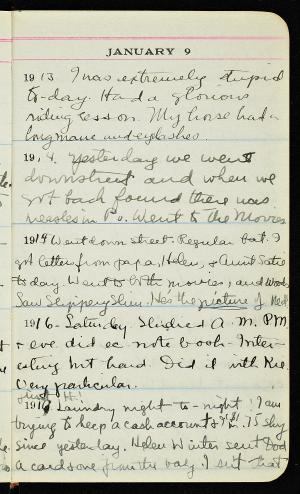 JANUARY 9
1913 I was extremely stupid
to-day. Had a glorious
riding lesson. My horse had a
long mane and eyelashes.
191 4. Yesterday we went
downstreet and when we
got back found there was
measles in Po. Went to the Movies
191 Went down street. Regular bat. I
got letter from papa, Helen, & Aunt Satie
to day. Went to both movies, and
Saw Slippery Slim. He's the picture of
1916 - Saturday. Studied A.M. P.M
+ eve did ec note book - Inter-
esting but hard. Did it with
Very particular.
191 Laundry night to-night! I am
trying to keep a cash account & I'm .75 shy
since yesterday. Helen Winter sent
a card one from the I sent that